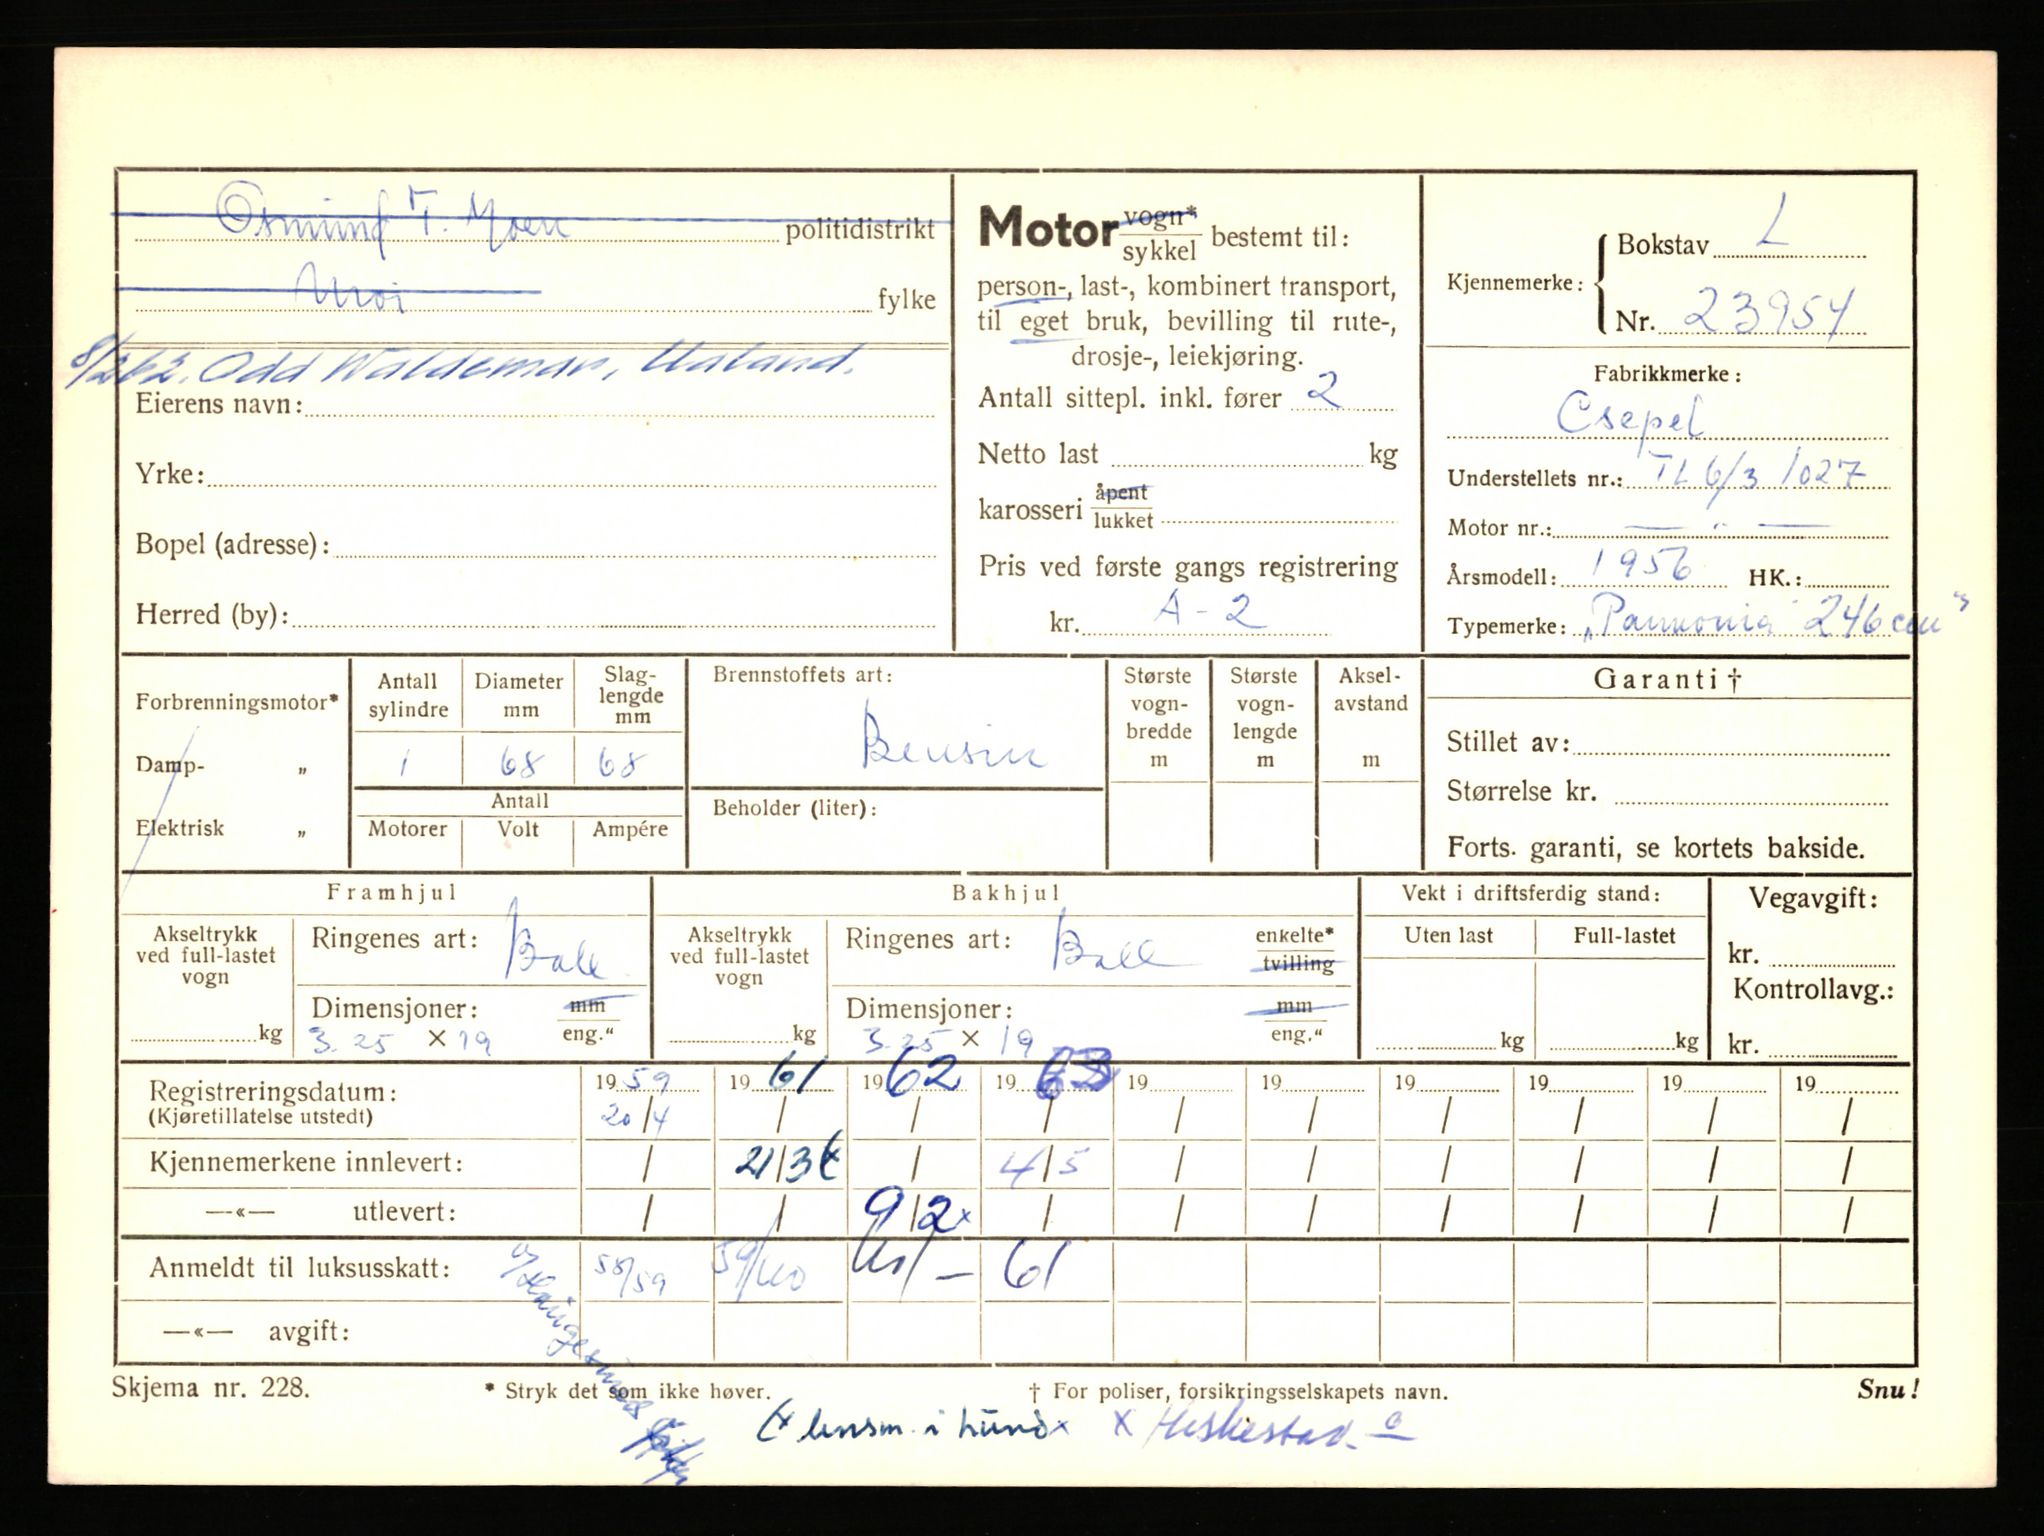 Osmund T. Moen politidistrikt
Moi fylke
8/2 62. Odd Waldemar, Ualand.
Eierens navn:
Yrke:
Bopel (adresse):
Herred (by):
Motor vogn* sykkel bestemt til:
person-, last-, kombinert transport,
til eget bruk, bevilling til rute-,
drosje-, leiekjøring.
Antall sittepl. inkl. fører 2
Netto last kg
karosseri åpent lukket
Pris ved første gangs registrering
kr. A-2
Kjennemerke: Bokstav L
Nr. 23954
Fabrikkmerke:
Csepel
Understellets nr.: TL 6/3 1027
Motor nr.: — " —
Årsmodell: 1956 HK.:
Typemerke: „Pannonia" 246 cm³
Forbrenningsmotor*
Damp- „
Elektrisk „
Antall sylindre
Diameter mm
Slag-lengde mm
1 68 68
Antall
Motorer Volt Ampére
Brennstoffets art:
Bensin
Beholder (liter):
Største vogn-bredde m
Største vogn-lengde m
Aksel-avstand m
Garanti †
Stillet av:
Størrelse kr.
Forts. garanti, se kortets bakside.
Framhjul
Akseltrykk ved full-lastet vogn
kg
Ringenes art: Ball
Dimensjoner: mm eng."
3.25 × 19
Bakhjul
Akseltrykk ved full-lastet vogn
kg
Ringenes art: Ball enkelte* tvilling
Dimensjoner: mm eng."
3.25 × 19
Vekt i driftsferdig stand:
Uten last Full-lastet
kg kg
Vegavgift:
kr.
Kontrollavg.:
kr.
Registreringsdatum: 1959 1961 1962 1963 19 19 19 19 19 19
(Kjøretillatelse utstedt) 20/4 / / / / / / / / /
Kjennemerkene innlevert: / 21/3 / 4/5 / / / / / /
—«— utlevert: / / 9/2 x / / / / / / /
Anmeldt til luksusskatt: 58/59 59/60 61
—«— avgift:
Skjema nr. 228.
* Stryk det som ikke høver.
† For poliser, forsikringsselskapets navn.
Snu!
lensm. i Lund x
x Heskestad